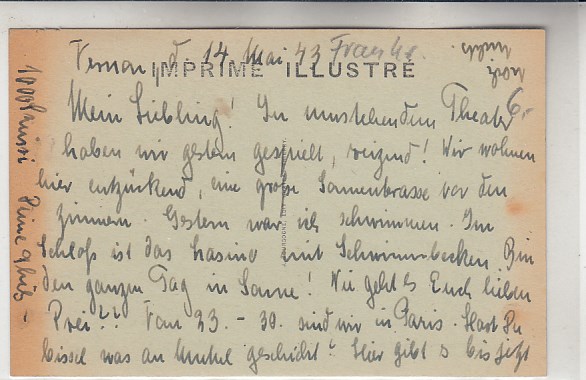 Vernon, d. 14 Mai 43
IMPRIMÉ ILLUSTRÉ
6.-
Mein Liebling! In umstehendem Theater
haben wir gestern gespielt, reizend! Wir wohnen
hier entzückend, eine große Sonnenterasse vor den
Zimmern. Gestern war ich schwimmen. Im
Schloß ist das Casino mit Schwimmbecken. Bin
den ganzen Tag in Sonne! Wie geht es Euch lieben
Drei?? Vom 23. - 30. sind wir in Paris. Hast Du
bissel was an Muckel geschickt? Hier gibt s bis jetzt
1000 Bussi Deine
noch